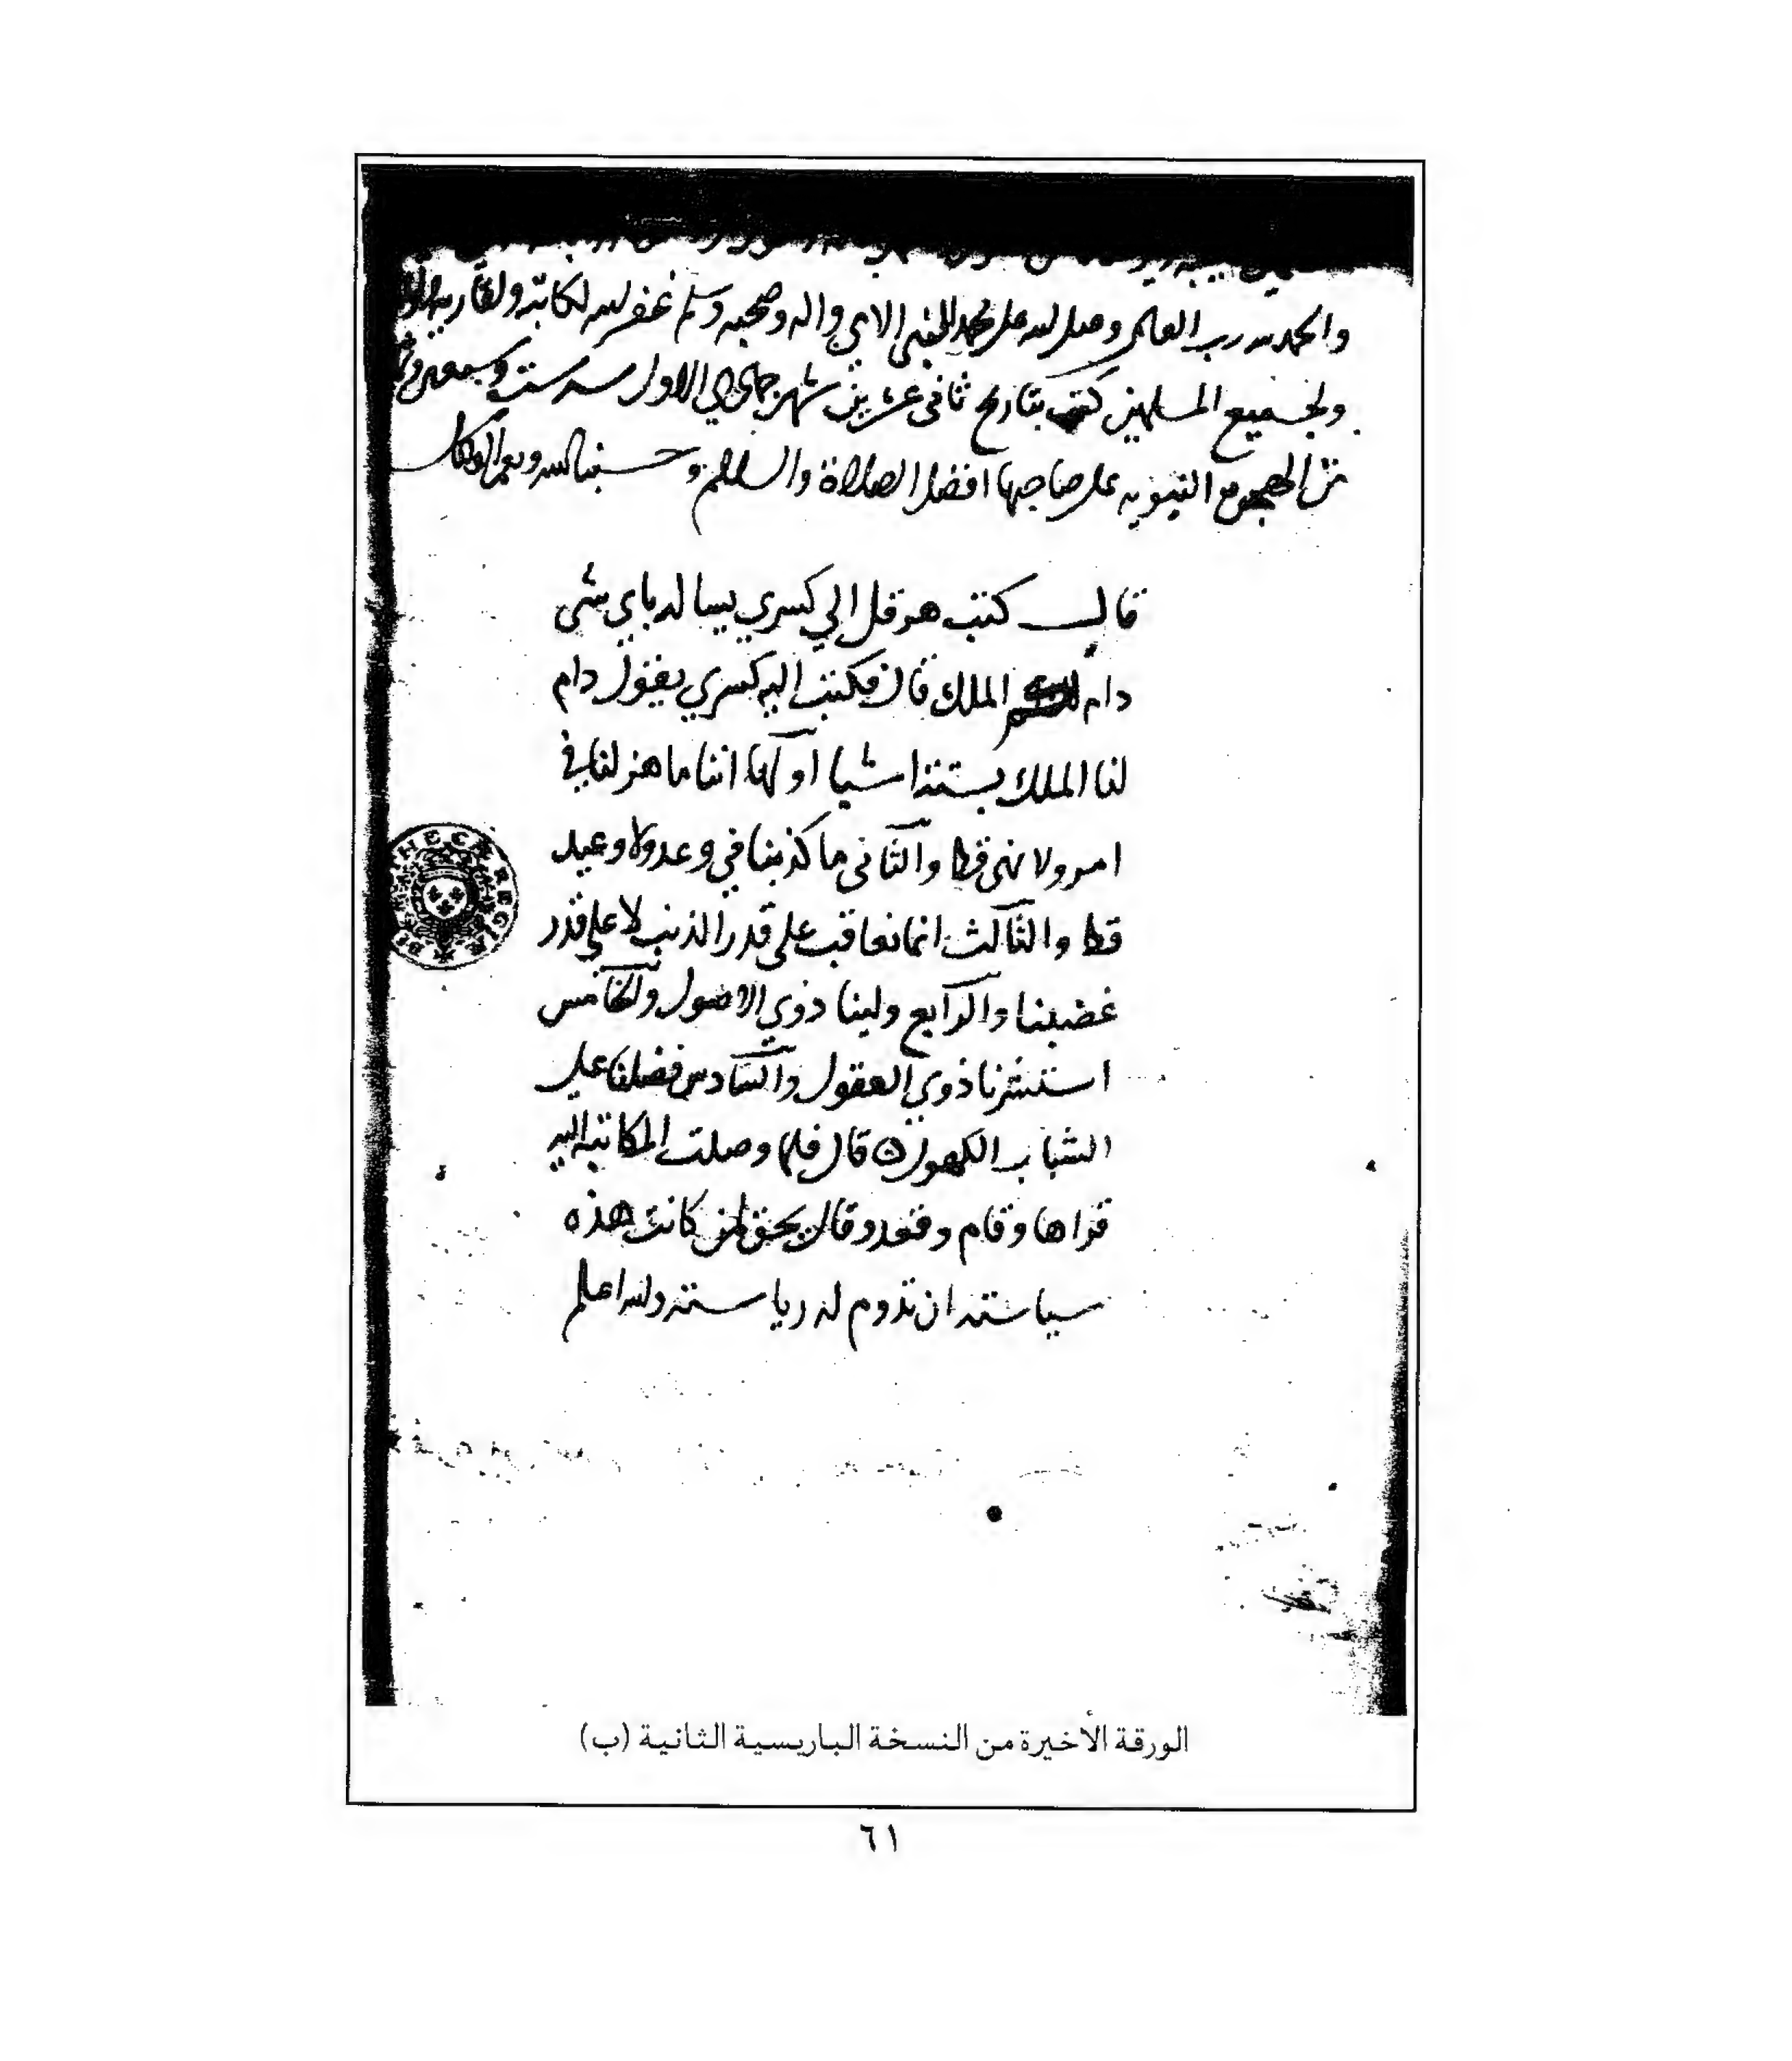 والحمد لله رب العالمين وصلى الله على محمد النبي الامي واله وصحبه وسلم غفر الله لكاتبه ولقاريه
ولجميع المسلمين كتب بتاريخ ثاني عشرين شهر جمادي الاول سنه ست وسبعين
من الهجرة النبويه على صاحبها افضل الصلاة والسلام وحسبنا الله ونعم الوكيل
قال كتب هرقل الي كسري يساله باي شي
دام الملك قال فكتب اليه كسري يقول دام
لنا الملك بستة اشيا اولها اننا ما هزلنا في
امر ولا نهي قط والثاني ما كذبنا في وعد ولا وعيد
قط والثالث انما نعاقب على قدر الذنب لا علي قدر
غضبنا والرابع ولينا ذوي الاصول والخامس
استشرنا ذوي العقول والسادس فضلنا على
الشباب الكهول قال فلما وصلت المكاتبه اليه
قراها وقام وقعد وقال يحق لمن كانت هذه
سياسته ان تدوم له رياسته والله اعلم
الورقة الأخيرة من النسخة الباريسية الثانية (ب)
٦١